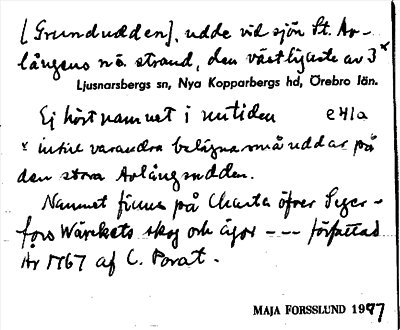 [Grundudden], udde vid sjön St. Av-
långens nö. strand, den västligaste av 3 x
Ljusnarsbergs sn, Nya Kopparbergs hd, Örebro län.
Ej hört namnet i nutiden e41a
x intill varandra belägna små uddar på
den stora Avlångsudden.
Namnet finns på Charta öfver Seger-
fors Wärckets skog och ägor --- författad
År 1767 af C. Porat.
MAJA FORSSLUND 1977